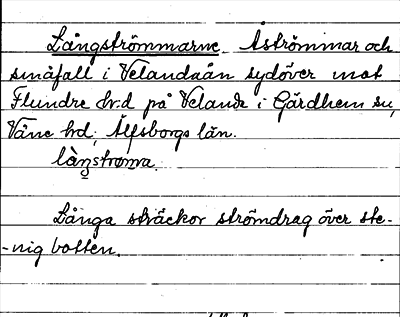 Långströmmarne. Åströmmar och
småfall i Velandaån sydöver mot
Flundre hrd på Velanda i Gärdhem sn,
Väne hrd, Älfsborgs län.
làŋstroma.
Långa sträckor strömdrag över ste-
-nig botten.